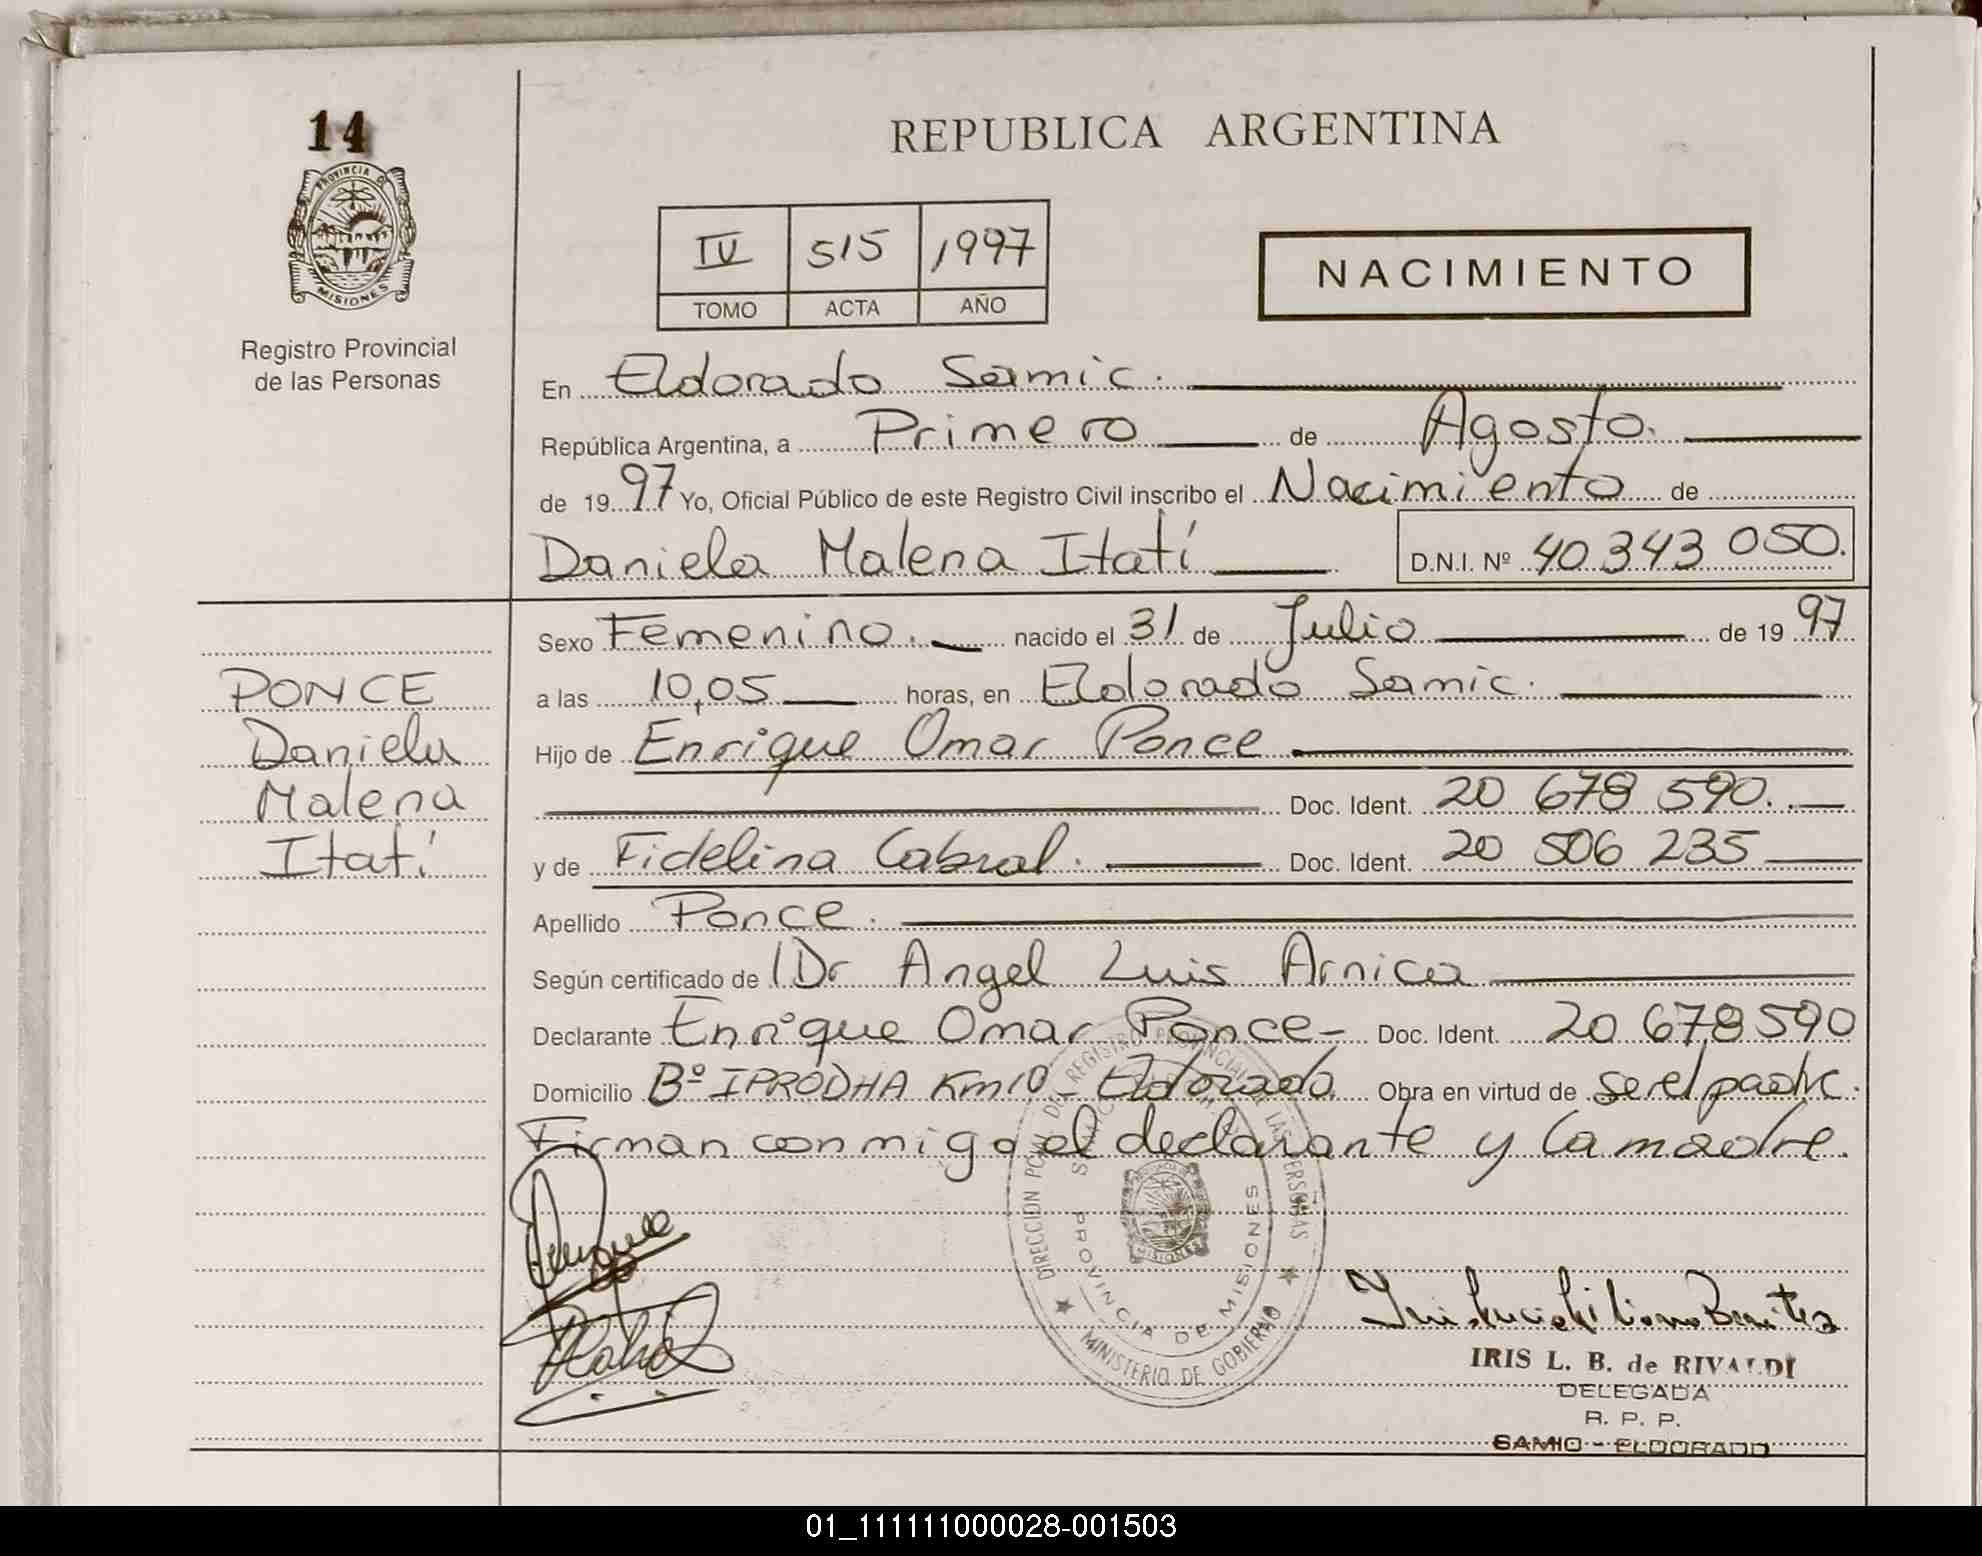 14
PROVINCIA DE
MISIONES
Registro Provincial
de las Personas
REPUBLICA ARGENTINA
IV 515 1997
TOMO ACTA AÑO
NACIMIENTO
En Eldorado Samic.
República Argentina, a Primero de Agosto.
de 1997 Yo, Oficial Público de este Registro Civil inscribo el Nacimiento de
Daniela Malena Itatí D.N.I. Nº 40 343 050.
Sexo Femenino. nacido el 31 de Julio de 1997
a las 10,05 horas, en Eldorado Samic.
Hijo de Enrique Omar Ponce
Doc. Ident. 20 678 590.
y de Fidelina Cabral. Doc. Ident. 20 506 235
Apellido Ponce.
Según certificado de Dr Angel Luis Arnica
Declarante Enrique Omar Ponce- Doc. Ident. 20 678 590
Domicilio Bº IPRODHA Km10 - Eldorado. Obra en virtud de ser el padre.
Firman conmigo el declarante y la madre.
PONCE
Daniela
Malena
Itatí
REGISTRO PROVINCIAL DE LAS PERSONAS
PROVINCIA DE MISIONES
MINISTERIO DE GOBIERNO
MISIONES
IRIS L. B. de RIVALDI
DELEGADA
R. P. P.
SAMIC - ELDORADO
01_111111000028-001503